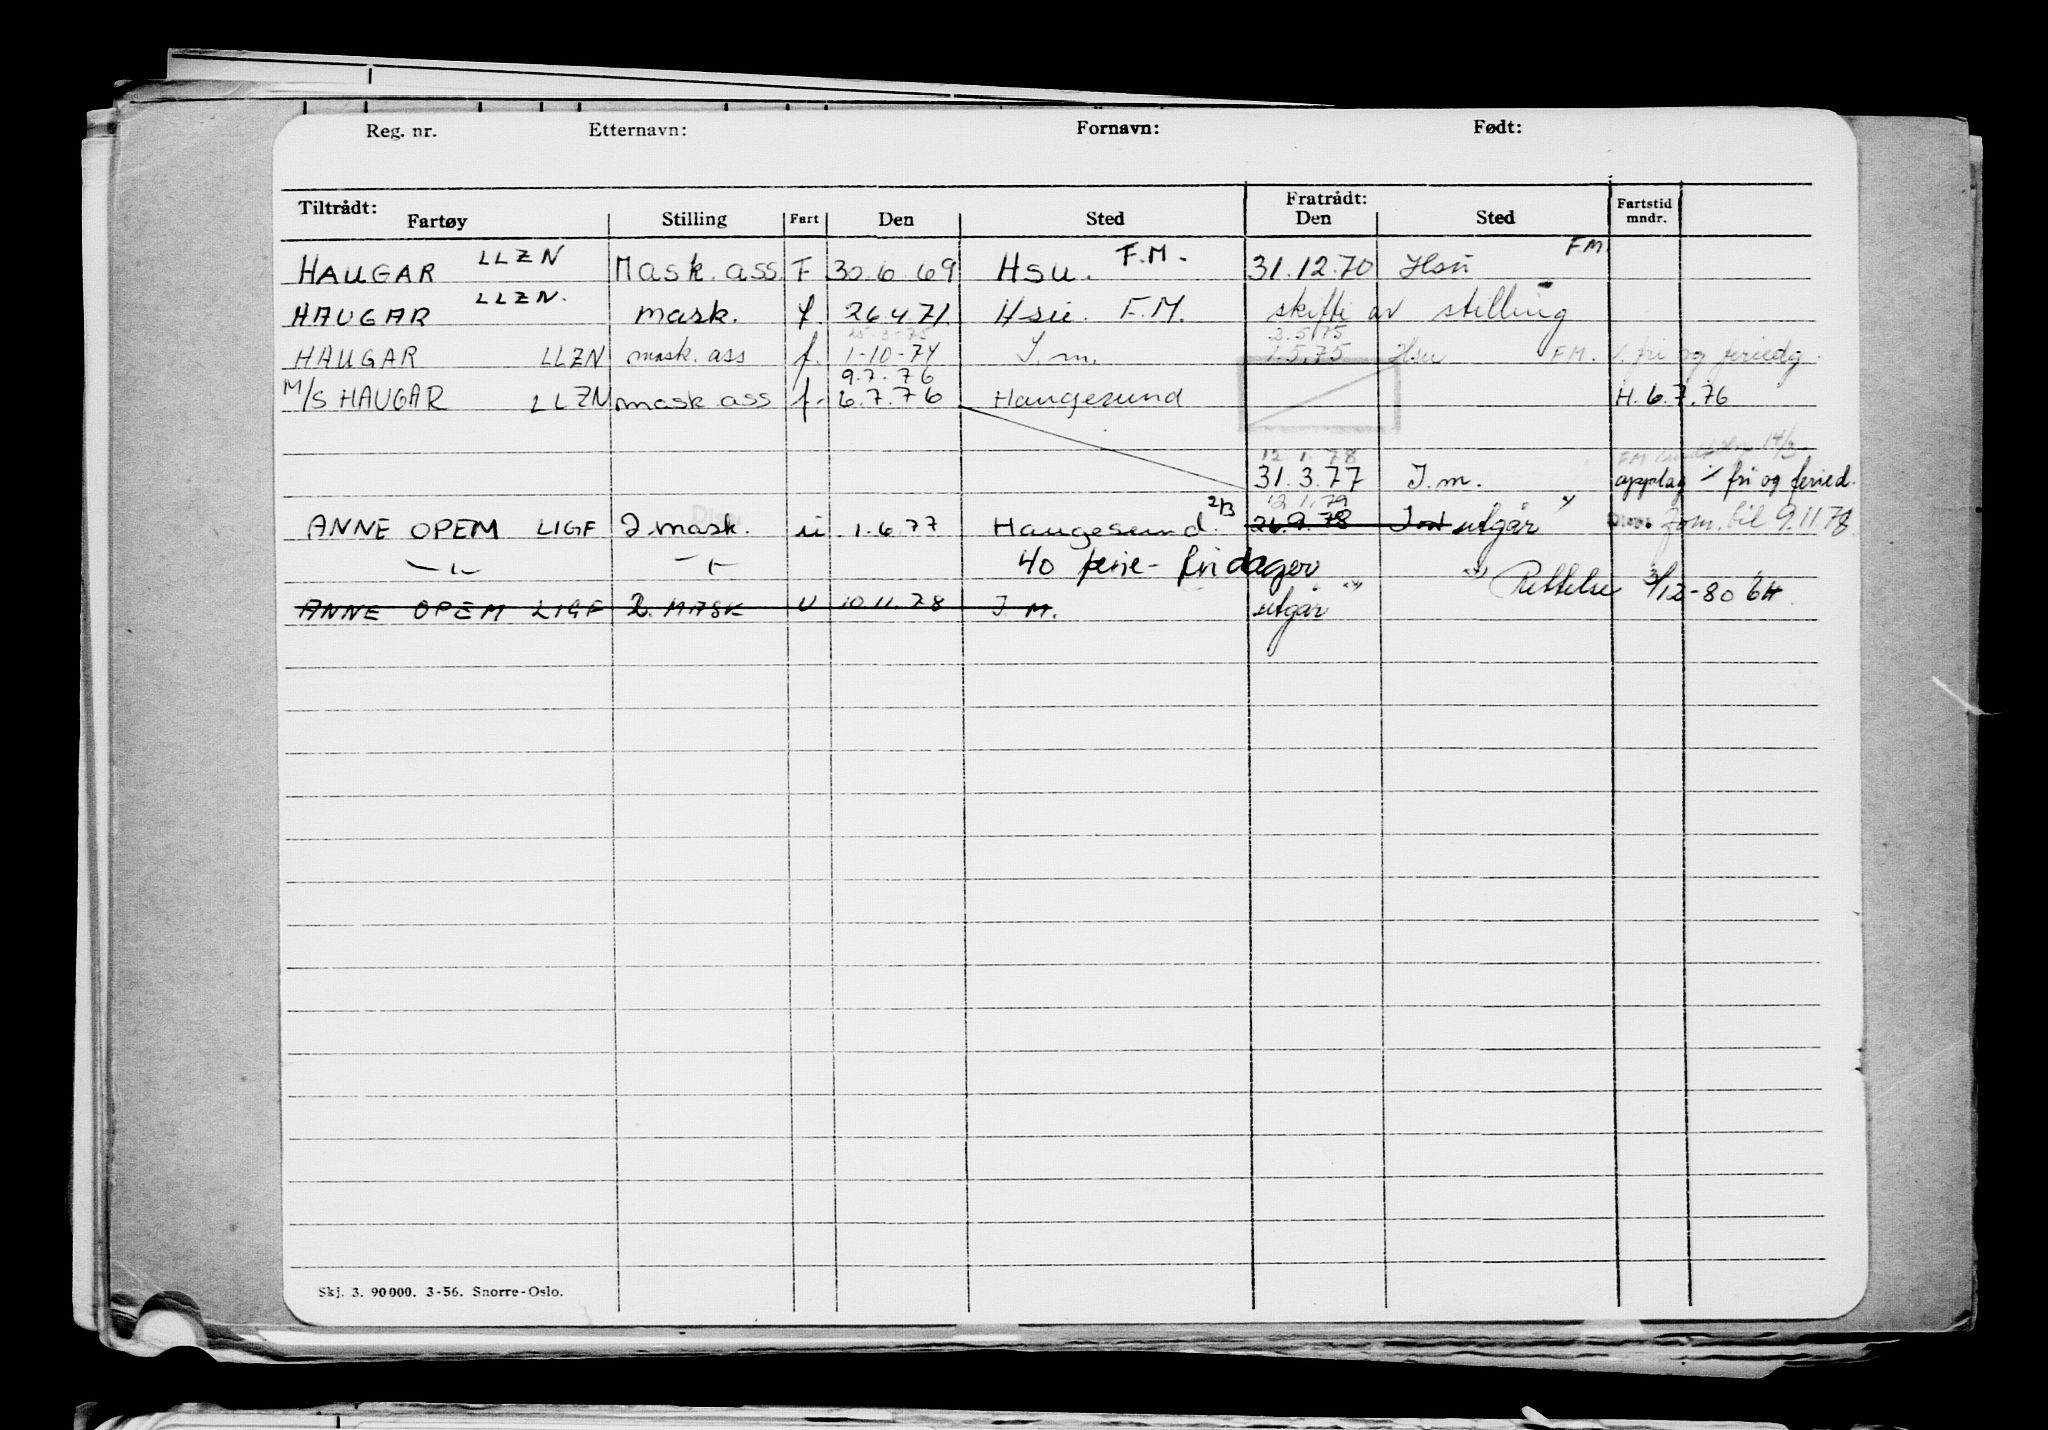 Reg. nr. Etternavn: Fornavn: Født:
Tiltrådt: Fratrådt:
Fartøy Stilling Fart Den Sted Den Sted Fartstid mndr.
HAUGAR LLZN Mask. ass. F 30.6.69 Hsu. F.M. 31.12.70 Hsu F M
HAUGAR LLZN. mask. f. 26.4.71. Hsu. F.M. skifte av stilling
25.3.75 2.5.75
HAUGAR LLZN mask. ass f. 1-10-74 I.m. 1.5.75 Hsu FM. % fri og feriedg.
9.7.76
M/S HAUGAR LLZN mask ass f. 6.7.76 Haugesund H. 6.7.76
12.1.78 FM 14/3
31.3.77 I.m. opptag % fri og feried.
12.1.79
ANNE OPEM LIGF 2 mask. u 1.6.77 Haugesund. 2/3 26.9.78 I.m utgår x) from. til 9.11 78
-"- -"- 40 ferie- fridager
xx) Rettelse 3/12-80 GH
ANNE OPEM LIGF 2. MASK U 10.11.78 I M. utgår xx)
Skj. 3. 90 000. 3-56. Snorre-Oslo.